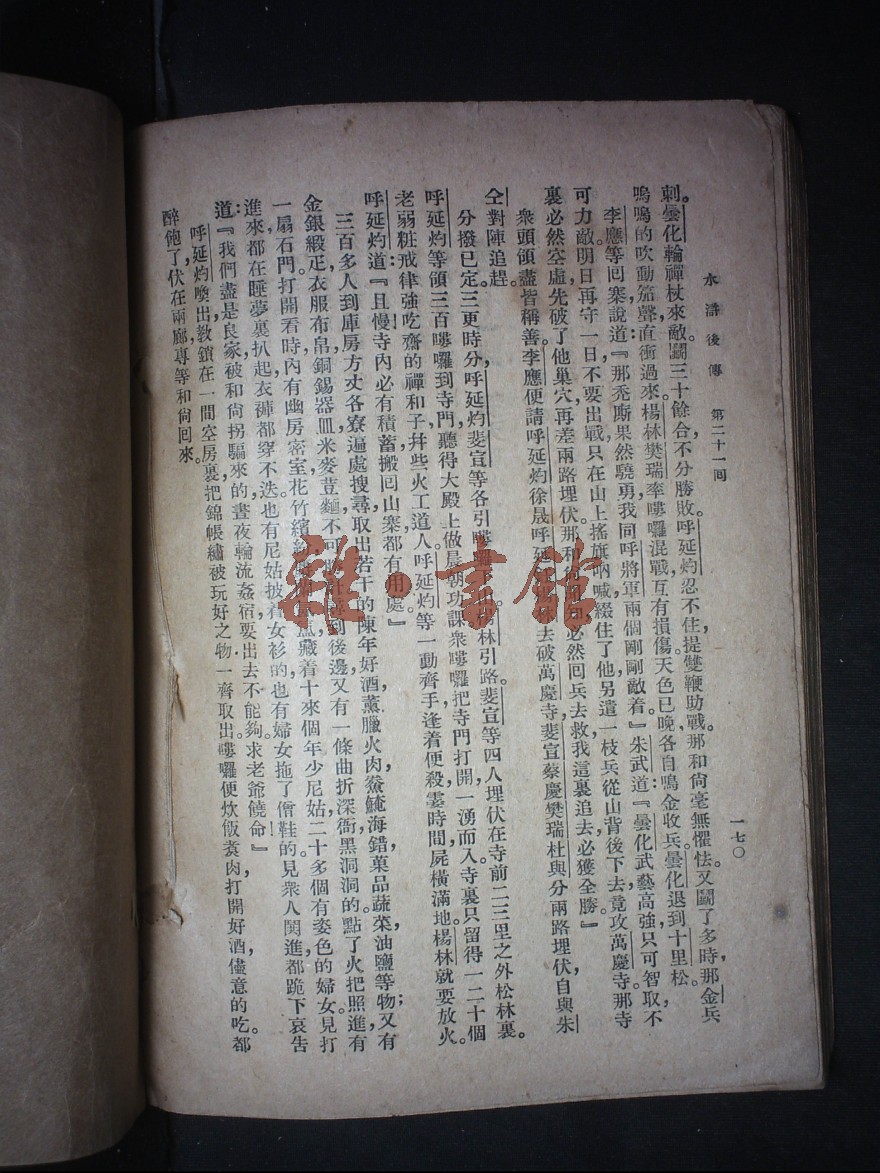 水滸後傳　第二十一回　一七〇
刺。曇化輪禪杖來敵。鬭三十餘合，不分勝敗。呼延灼忍不住，提雙鞭助戰。那和尙毫無懼怯。又鬭了多時，那金兵
嗚嗚的吹動笳聲，直衝過來。楊林樊瑞率嘍囉混戰，互有損傷。天色已晚，各自鳴金收兵。曇化退到十里松。
李應等回寨說道：『那禿廝果然驍勇，我同呼將軍兩個剛剛敵着。』朱武道：『曇化武藝高強，只可智取，不
可力敵。明日再守一日，不要出戰，只在山上搖旗吶喊，綴住了他。另遣一枝兵從山背後下去，竟攻萬慶寺。那寺
裏必然空虛，先破了他巢穴，再差兩路埋伏。那和尙必然回兵去救，我這裏追去，必獲全勝。』
衆頭領盡皆稱善。李應便請呼延灼徐晟呼延去破萬慶寺，裴宣蔡慶樊瑞杜興分兩路埋伏，自與朱
仝對陣追趕。
分撥已定，三更時分，呼延灼裴宣等各引嘍囉下山。楊林引路，裴宣等四人埋伏在寺前二三里之外松林裏。
呼延灼等領三百嘍囉到寺門，聽得大殿上做晨朝功課，衆嘍囉把寺門打開，一湧而入。寺裏只留得一二十個
老弱粧戒律強吃齋的禪和子，幷些火工道人。呼延灼等一動齊手，逢着便殺，霎時間屍橫滿地。楊林就要放火。
呼延灼道：『且慢，寺內必有積蓄，搬回山寨都有用處。』
三百多人到庫房方丈各寮遍處搜尋，取出若干的陳年好酒，薰臘火肉，鯗醃海錯，菓品蔬菜，油鹽等物；又有
金銀緞疋，衣服布帛，銅錫器皿，米麥荳麵，不可勝計。尋到後邊，又有一條曲折深衖，黑洞洞的，點了火把照進，有
一扇石門。打開看時，內有幽房密室，花竹繽紛，藏着十來個年少尼姑，二十多個有姿色的婦女，見打
進來，都在睡夢裏扒起，衣褲都穿不迭。也有尼姑披着女衫的，也有婦女拖了僧鞋的，見衆人闖進，都跪下哀告
道：『我們盡是良家，被和尙拐騙來的，晝夜輪流姦宿，要出去不能夠。求老爺饒命！』
呼延灼喚出，教鎖在一間空房裏。把錦帳繡被玩好之物一齊取出。嘍囉便炊飯煑肉，打開好酒，儘意的吃。都
醉飽了，伏在兩廊，專等和尙回來。
雜·書館